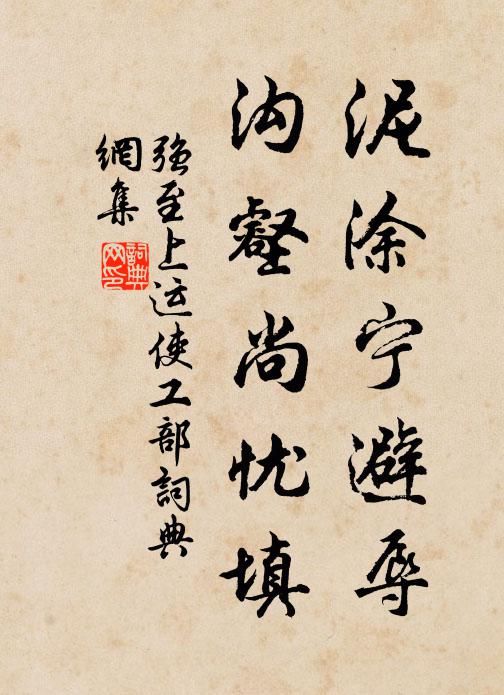 泥涂宁避辱
沟壑尚忧填
强至上运使工部詞典
網集
詞典
网印